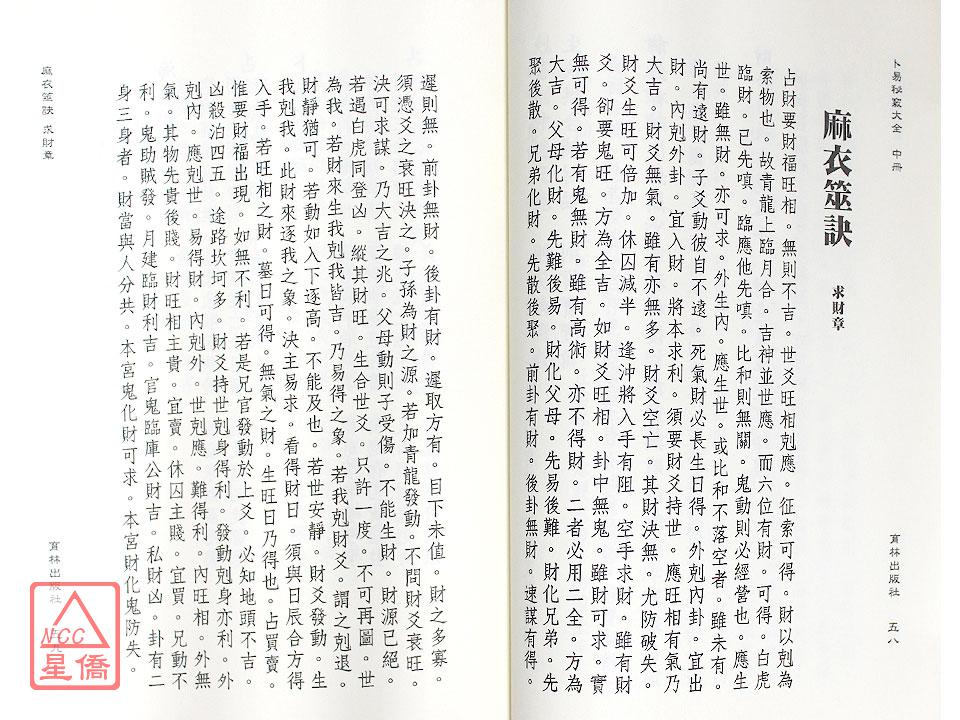 卜易秘竅大全 中冊
育林出版社 五八
麻衣筮訣 求財章
占財要財福旺相。無則不吉。世爻旺相剋應。征索可得。財以剋為
索物也。故青龍上臨月合。吉神並世應。而六位有財。可得。白虎
臨財。已先嗔。臨應他先嗔。比和則無關。鬼動則必經營也。應生
世。雖無財。亦可求。外生內。應生世。或比和不落空者。雖未有。
尚有遠財。子爻動彼自不遠。死氣財必長生日得。外剋內卦。宜出
財。內剋外卦。宜入財。將本求利。須要財爻持世。應旺相有氣乃
大吉。財爻無氣。雖有亦無多。財爻空亡。其財決無。尤防破失。
財爻生旺可倍加。休囚減半。逢沖將入手有阻。空手求財。雖有財
爻。卻要鬼旺。方為全吉。如財爻旺相。卦中無鬼。雖財可求。實
無可得。若有鬼無財。雖有高術。亦不得財。二者必用二全。方為
大吉。父母化財。先難後易。財化父母。先易後難。財化兄弟。先
聚後散。兄弟化財。先散後聚。前卦有財。後卦無財。速謀有得。
遲則無。前卦無財。後卦有財。遲取方有。目下未值。財之多寡。
須憑爻之衰旺決之。子孫為財之源。若加青龍發動。不問財爻衰旺。
決可求謀。乃大吉之兆。父母動則子受傷。不能生財。財源已絕。
若遇白虎同登凶。縱其財旺。生合世爻。只許一度。不可再圖。世
為我。若財來生我剋我皆吉。乃易得之象。若我剋財爻。謂之剋退。
財靜猶可。若動如入下逐高。不能及也。若世安靜。財爻發動。生
我剋我。此財來逐我之象。決主易求。看得財日。須與日辰合方得
入手。若旺相之財。墓日可得。無氣之財。生旺日乃得也。占買賣。
惟要財福出現。如無不利。若是兄官發動於上爻。必知地頭不吉。
凶殺泊四五。途路坎坷多。財爻持世剋身得利。發動剋身亦利。外
剋內。應剋世。易得財。內剋外。世剋應。難得利。內旺相。外無
氣。其物先貴後賤。財旺相主貴。宜賣。休囚主賤。宜買。兄動不
利。鬼助賊發。月建臨財利吉。官鬼臨庫公財吉。私財凶。卦有二
身三身者。財當與人分共。本宮鬼化財可求。本宮財化鬼防失。
麻衣筮訣 求財章
育林出版社
NCC
星僑